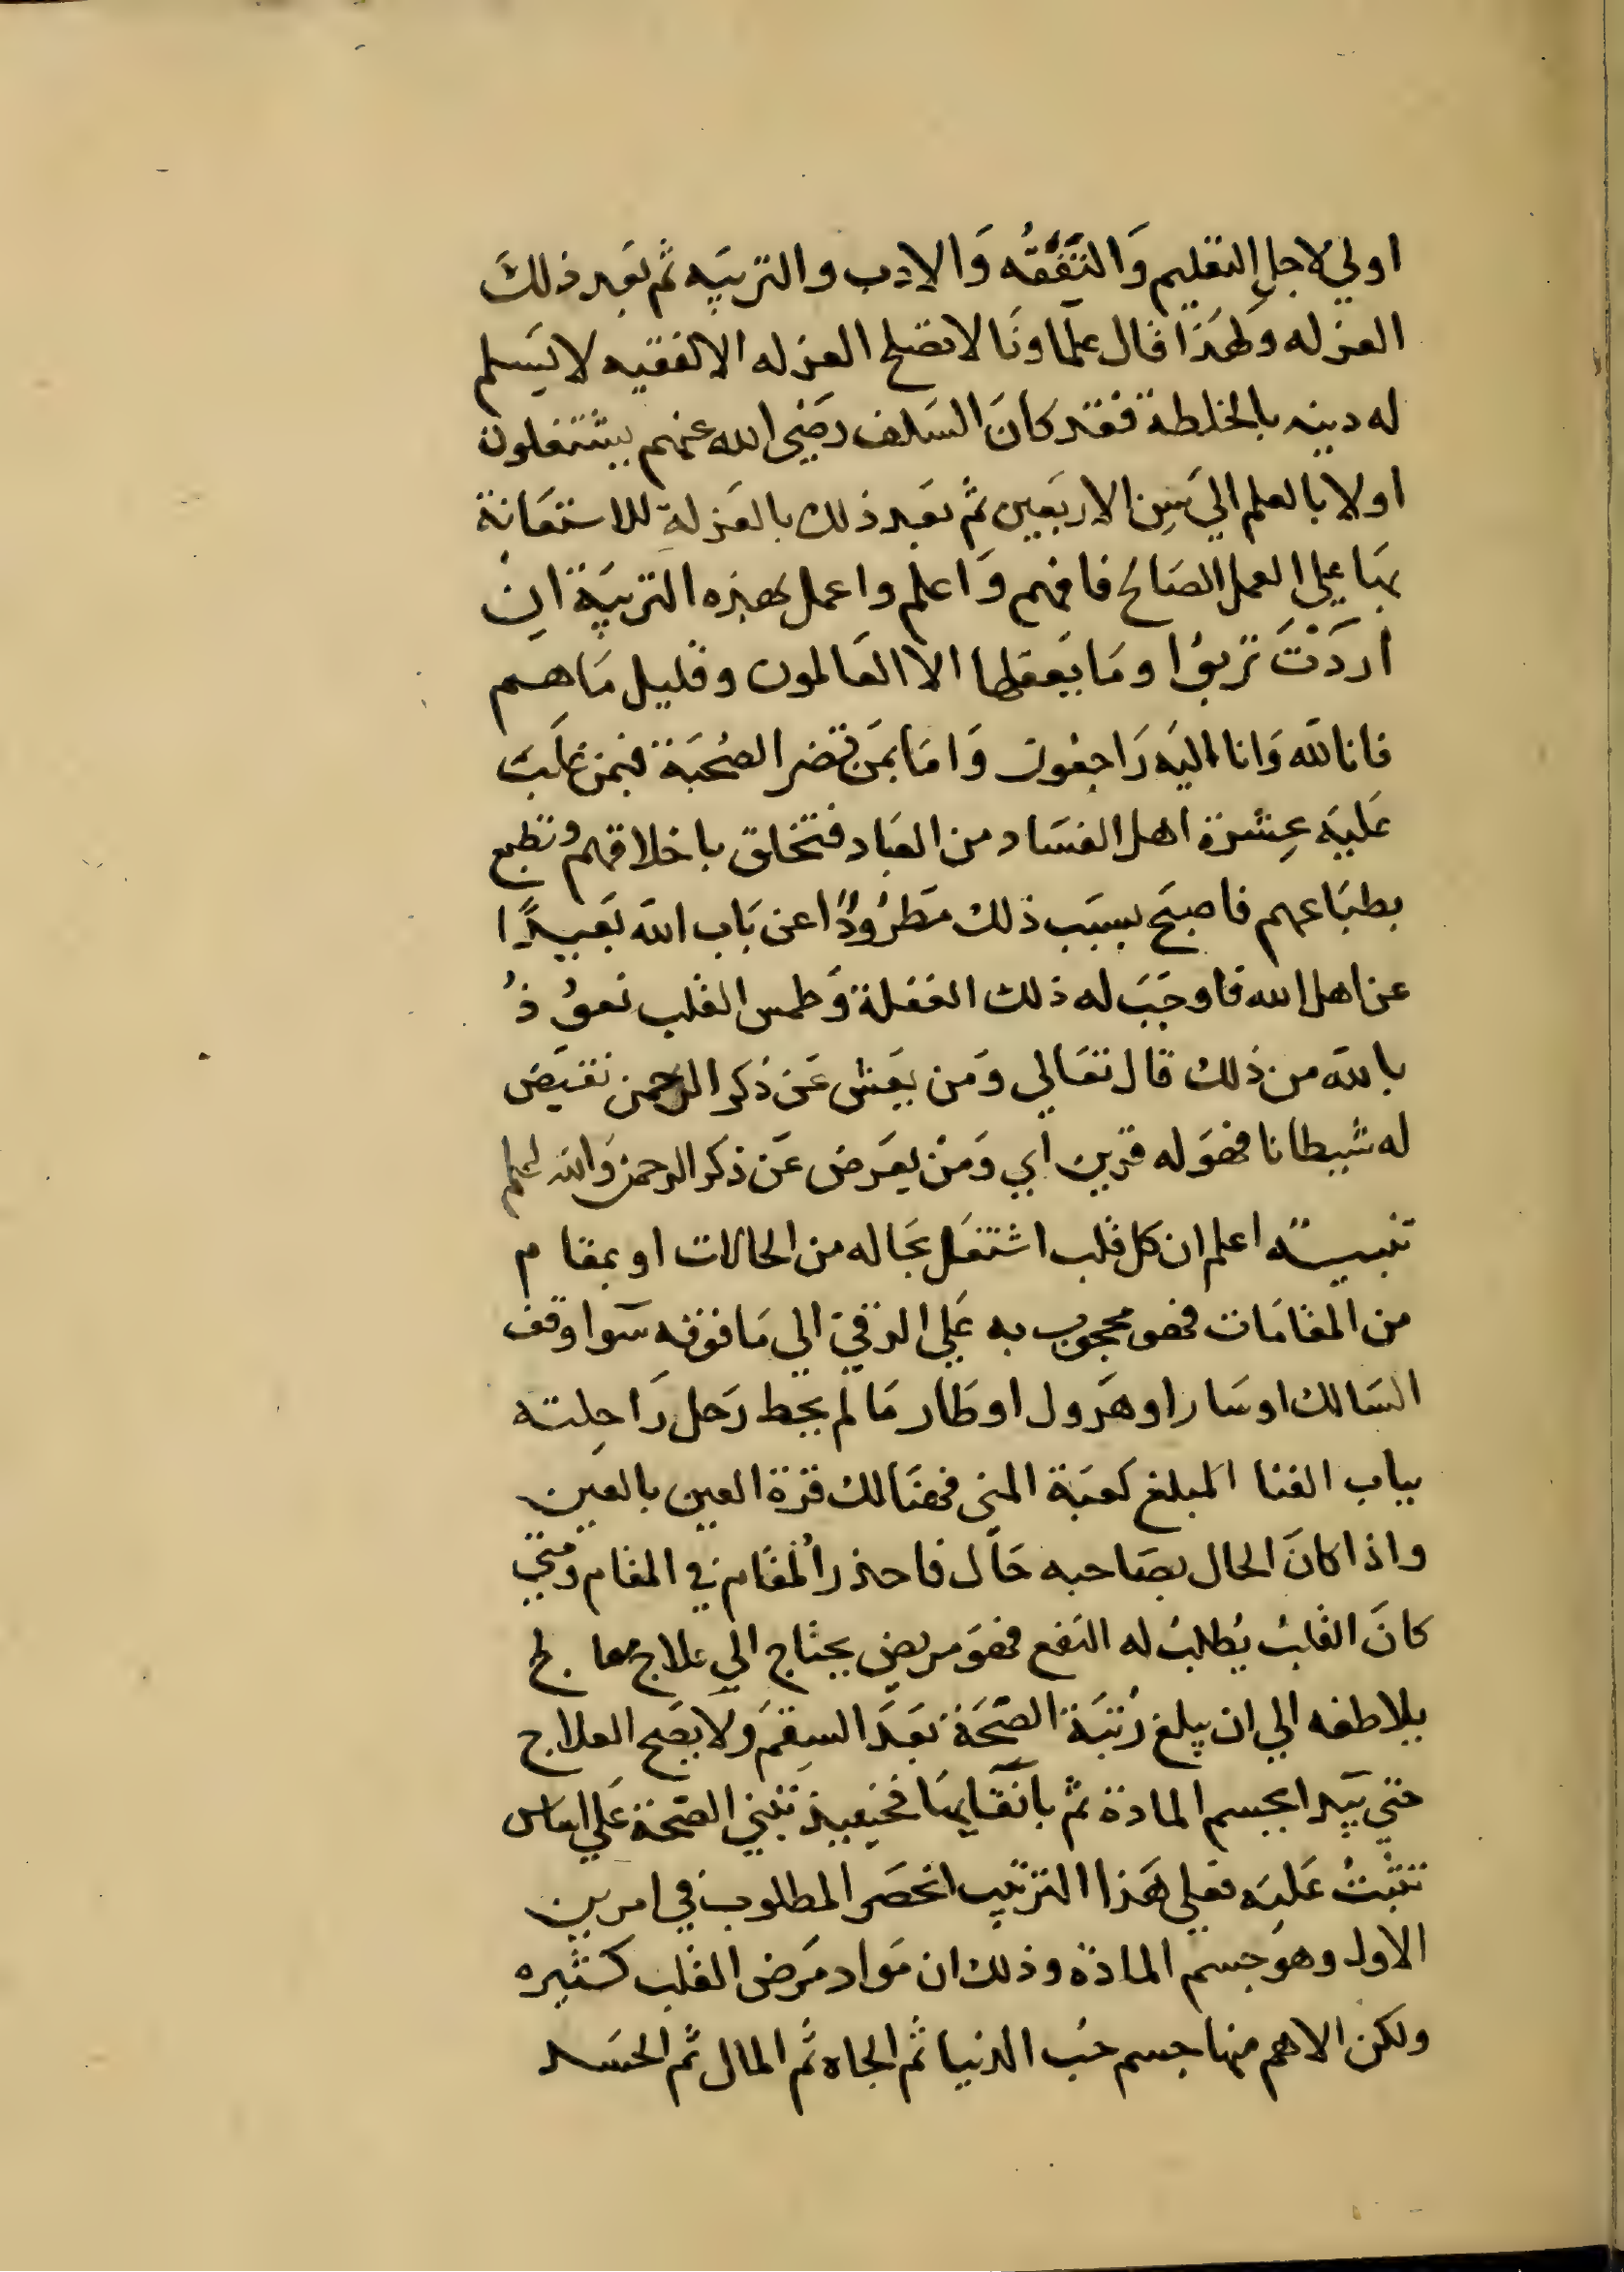 اولي لاجل التعليم وَالتَّفَقُّه وَالادب والتربيَه ثم بعَد ذلكَ
العزله ولهَذا قال علمَاونَا لا تصلح العزله الا لفقيه لا يَسلم
له دينه بالخلطة فقد كانَ السَلف رَضِي الله عنهم يشتغلون
اولا بالعلم الي سِن الاربَعين ثم بعَد ذلك بالعَزلةِ للاستعَانة
بهَا علي العمل الصَالح فافهم وَاعلم واعمل بهذه التربيَة ان
اردَتْ تربوُا ومَا يَعقلها الا العَالمون وقليل مَا هم
فانا لله وَانا اليَه رَاجعُون وَامَا بمَن تضر الصُحَبَة فبمن غلَبَت
عَليَه عِشرة اهل الفسَاد من العبَاد فتخلق باخلاقهم وتطبع
بطبَاعهم فاصبَح بسبَب ذلك مَطرُودًا عن بَاب الله بَعيدًا
عن اهل الله فاوجَبَ له ذلك الغفلة وَطمس القلب نعوُذُ
بالله من ذلك قال تعَالي وَمن يعَش عَن ذكر الرحمن نقيَض
له شيطانا فهوَ له قرين أي وَمَنْ يعَرض عَن ذكر الرحمن وَالله اعلم
تنبيـه اعلم ان كل قلب اشتغَل بحَاله من الحالات او بمقام
من المقامَات فهو محجوب به عَلي الرقي الي مَا فوقه سَوا وقف
السَالك او سَار او هَرول او طَار مَا لم يحط رَحل رَاحِلته
بباب الفنا المبلغ كعبَة المني فهنَالك قرة العين بالعَين
واذا كانَ الحال بصَاحبه حَال فاحذر المقَام في المقام ومَتي
كانَ القلبُ يُطلبُ له النفع فهوَ مريض يحتاج الي علاج معالج
يلاطفه الي ان يبلغ رُتبَة الصَحَة بعَدَ السِقمَ وَلا يصَح العلاج
حتي يَبدا بحسم المادة ثم بانقَايهَا فحينيذ تنبني الصَحة عَلي اساس
تثبتُ عَليَه فعلي هَذا الترتيب انحصَر المطلوب في امرين
الاول وهوَ حسم المادة وذلك ان مَواد مَرَض القلب كثيره
ولكن الاهم منها حسم حُب الدنيا ثم الجاه ثم المال ثم الحسَد